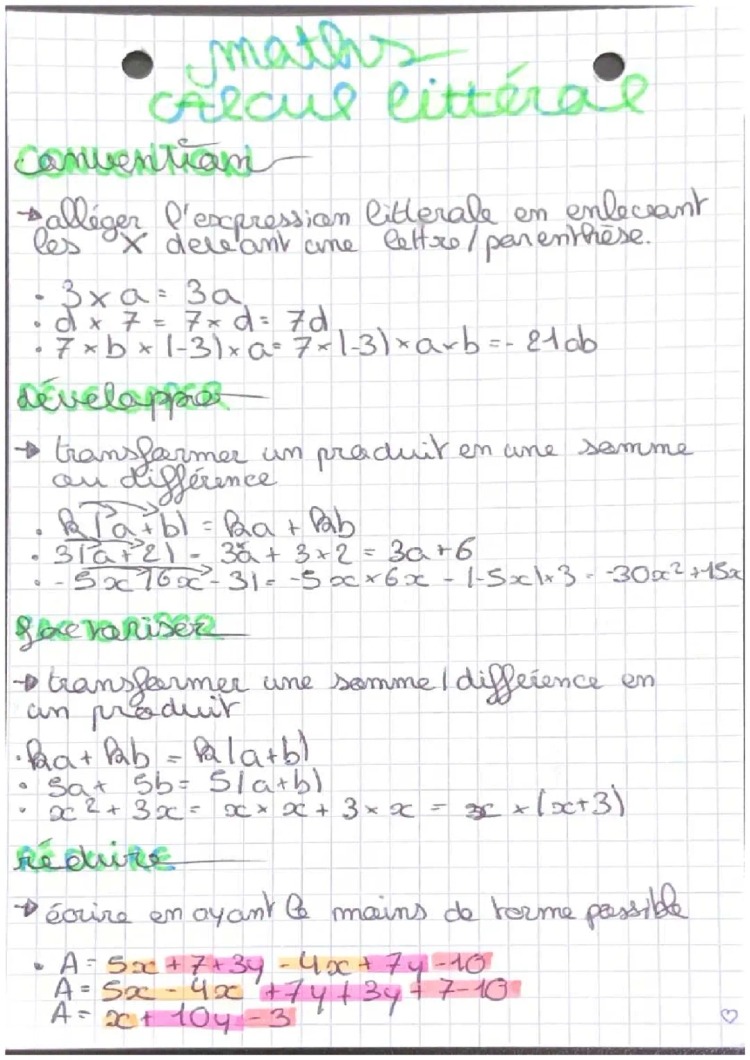 maths
calcul littéral
convention
→ alléger l'expression litterale en enlevant
les × devant une lettre / parenthèse.
• 3 × a = 3a
• d × 7 = 7 × d = 7d
• 7 × b × (-3) × a = 7 × (-3) × a × b = - 21ab
développer
→ transformer un produit en une somme
ou différence
• k(a+b) = ka + kb
• 3(a+2) = 3a + 3×2 = 3a+6
• -5x(6x-3) = -5x×6x - (-5x)×3 = -30x²+15x
factoriser
→ transformer une somme/différence en
un produit
• ka + kb = k(a+b)
• 5a + 5b = 5(a+b)
• x² + 3x = x × x + 3 × x = x × (x+3)
réduire
→ écrire en ayant le moins de terme possible
• A = 5x + 7 + 3y - 4x + 7y - 10
A = 5x - 4x + 7y + 3y + 7 - 10
A = x + 10y - 3